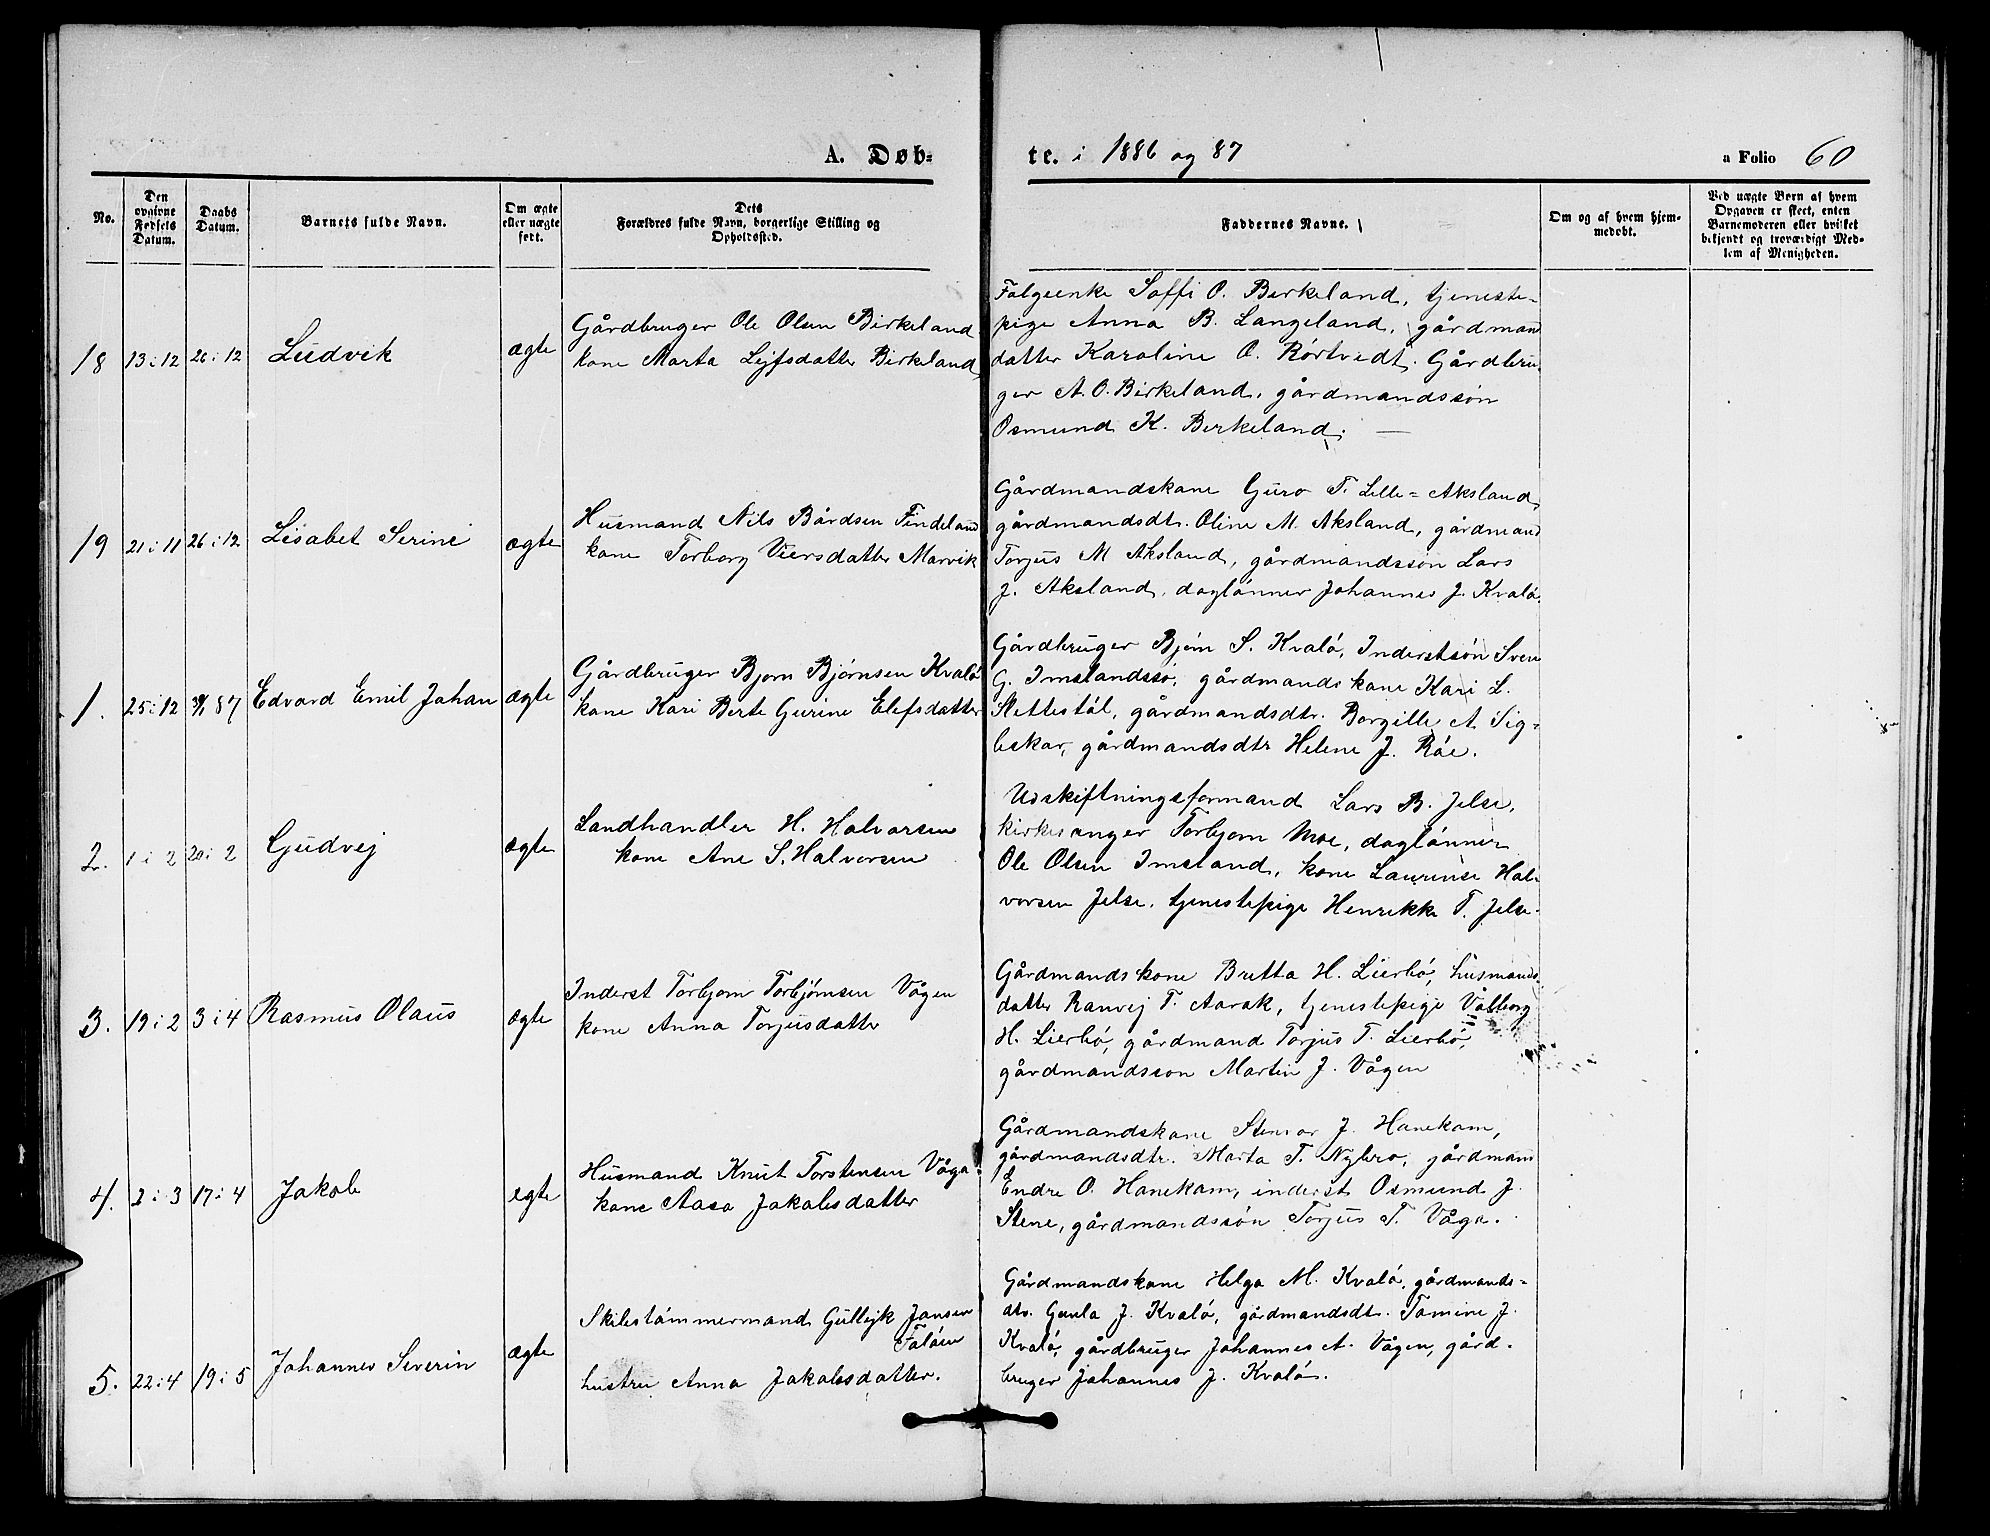 A. Døb-
te. i 1886 og 87
a Folio 60
No.
Den opgivne Fødsels Datum.
Daabs Datum.
Barnets fulde Navn.
Om ægte eller uægte født.
Dets Forældres fulde Navn, borgerlige Stilling og Opholdssted.
Faddernes Navne.
Om og af hvem hjemmedøbt.
Ved uægte Børn af hvem Opgaven er skeet, enten Barnemoderen eller hvilket bekjendt og troværdigt Medlem af Menigheden.
18 13 i 12 26 i 12 Ludvik ægte
Gårdbruger Ole Olsen Birkeland
kone Marta Lejfsdatter Birkeland
Folgeenke Soffi O. Berkeland, tjeneste-
pige Anna B. Langeland, gårdman
datter Karoline O. Rörtvedt. Gårdbru
ger A. O. Birkeland, gårdmandssön
Osmund K. Berkeland.
19 21 i 11 26 i 12 Lisabet Serine ægte
Husmand Nils Bårdsen Findeland
kone Torborg Viersdatter Marvik
Gårdmandskone Guro T. Lille-Aksland,
gårdmandsdtr. Oline M. Aksland, gårdmand
Torjus M Aksland, gårdmandssön Lars
J. Aksland, daglönner Johannes J. Kvalö.
1. 25 i 12 87 Edvard Emil Johan ægte
Gårdbruger Bjorn Björnsen Kvalö
kone Kari Berte Gurine Elefsdatter
Gårdbruger Bjön S. Kvalö, Inderstsön Sven
G. Imslandssö, gårdmandskone Kari L.
Slettestöl, gårdmandsdtr. Borgille A. Sig-
leskar, gårdmandsdtr Helene J. Röe.
2. 1 i 2 20 i 2 Gudvej ægte
Landhandler H. Halvorsen
kone Ane S. Halvorsen
Udskiftningsformand Lars B. Jelse,
kirkesanger Torbjorn Moe, daglönner
Ole Olsen Imsland, kone Laurense Hal-
vorsen Jelse, tjenestepige Henrikke T. Jelse.
3. 19 i 2 3 i 4 Rasmus Olaus ægte
Inderst Torbjorn Torbjörnsen Vågen
kone Anna Torjusdatter
Gårdmandskone Britta H. Lierbö, husmands
datter Ranvej T. Aarak, tjenestepige Valborg
H. Lierbö, gårdmand Torjus T. Lierbö,
gårdmandsson Martin J. Vågen
4. 2 i 3 17 i 4 Jakob egte
Husmand Knut Torstensen Våga
kone Aasa Jakobsdatter
Gårdmandskone Stenvor J. Hanekam,
gårdmandsdtr. Marta T. Nybro, gårdmand
Endre O. Hanekam, inderst Osmund J.
Stene, gårdmandssön Torjus T. Våga.
5. 22 i 4 19 i 5 Johannes Severin ægte
Skibstömmermand Gullejk Jansen
Folöen
hustru Anna Jakobsdatter.
Gårdmandskone Helga M. Kvalö, gårdmands-
dtr. Gunla J. Kvalö, gårdmandsdt. Tomine J.
Kvalö, gårdbruger Johannes A. Vågen, gård-
bruger Johannes J. Kvalö.